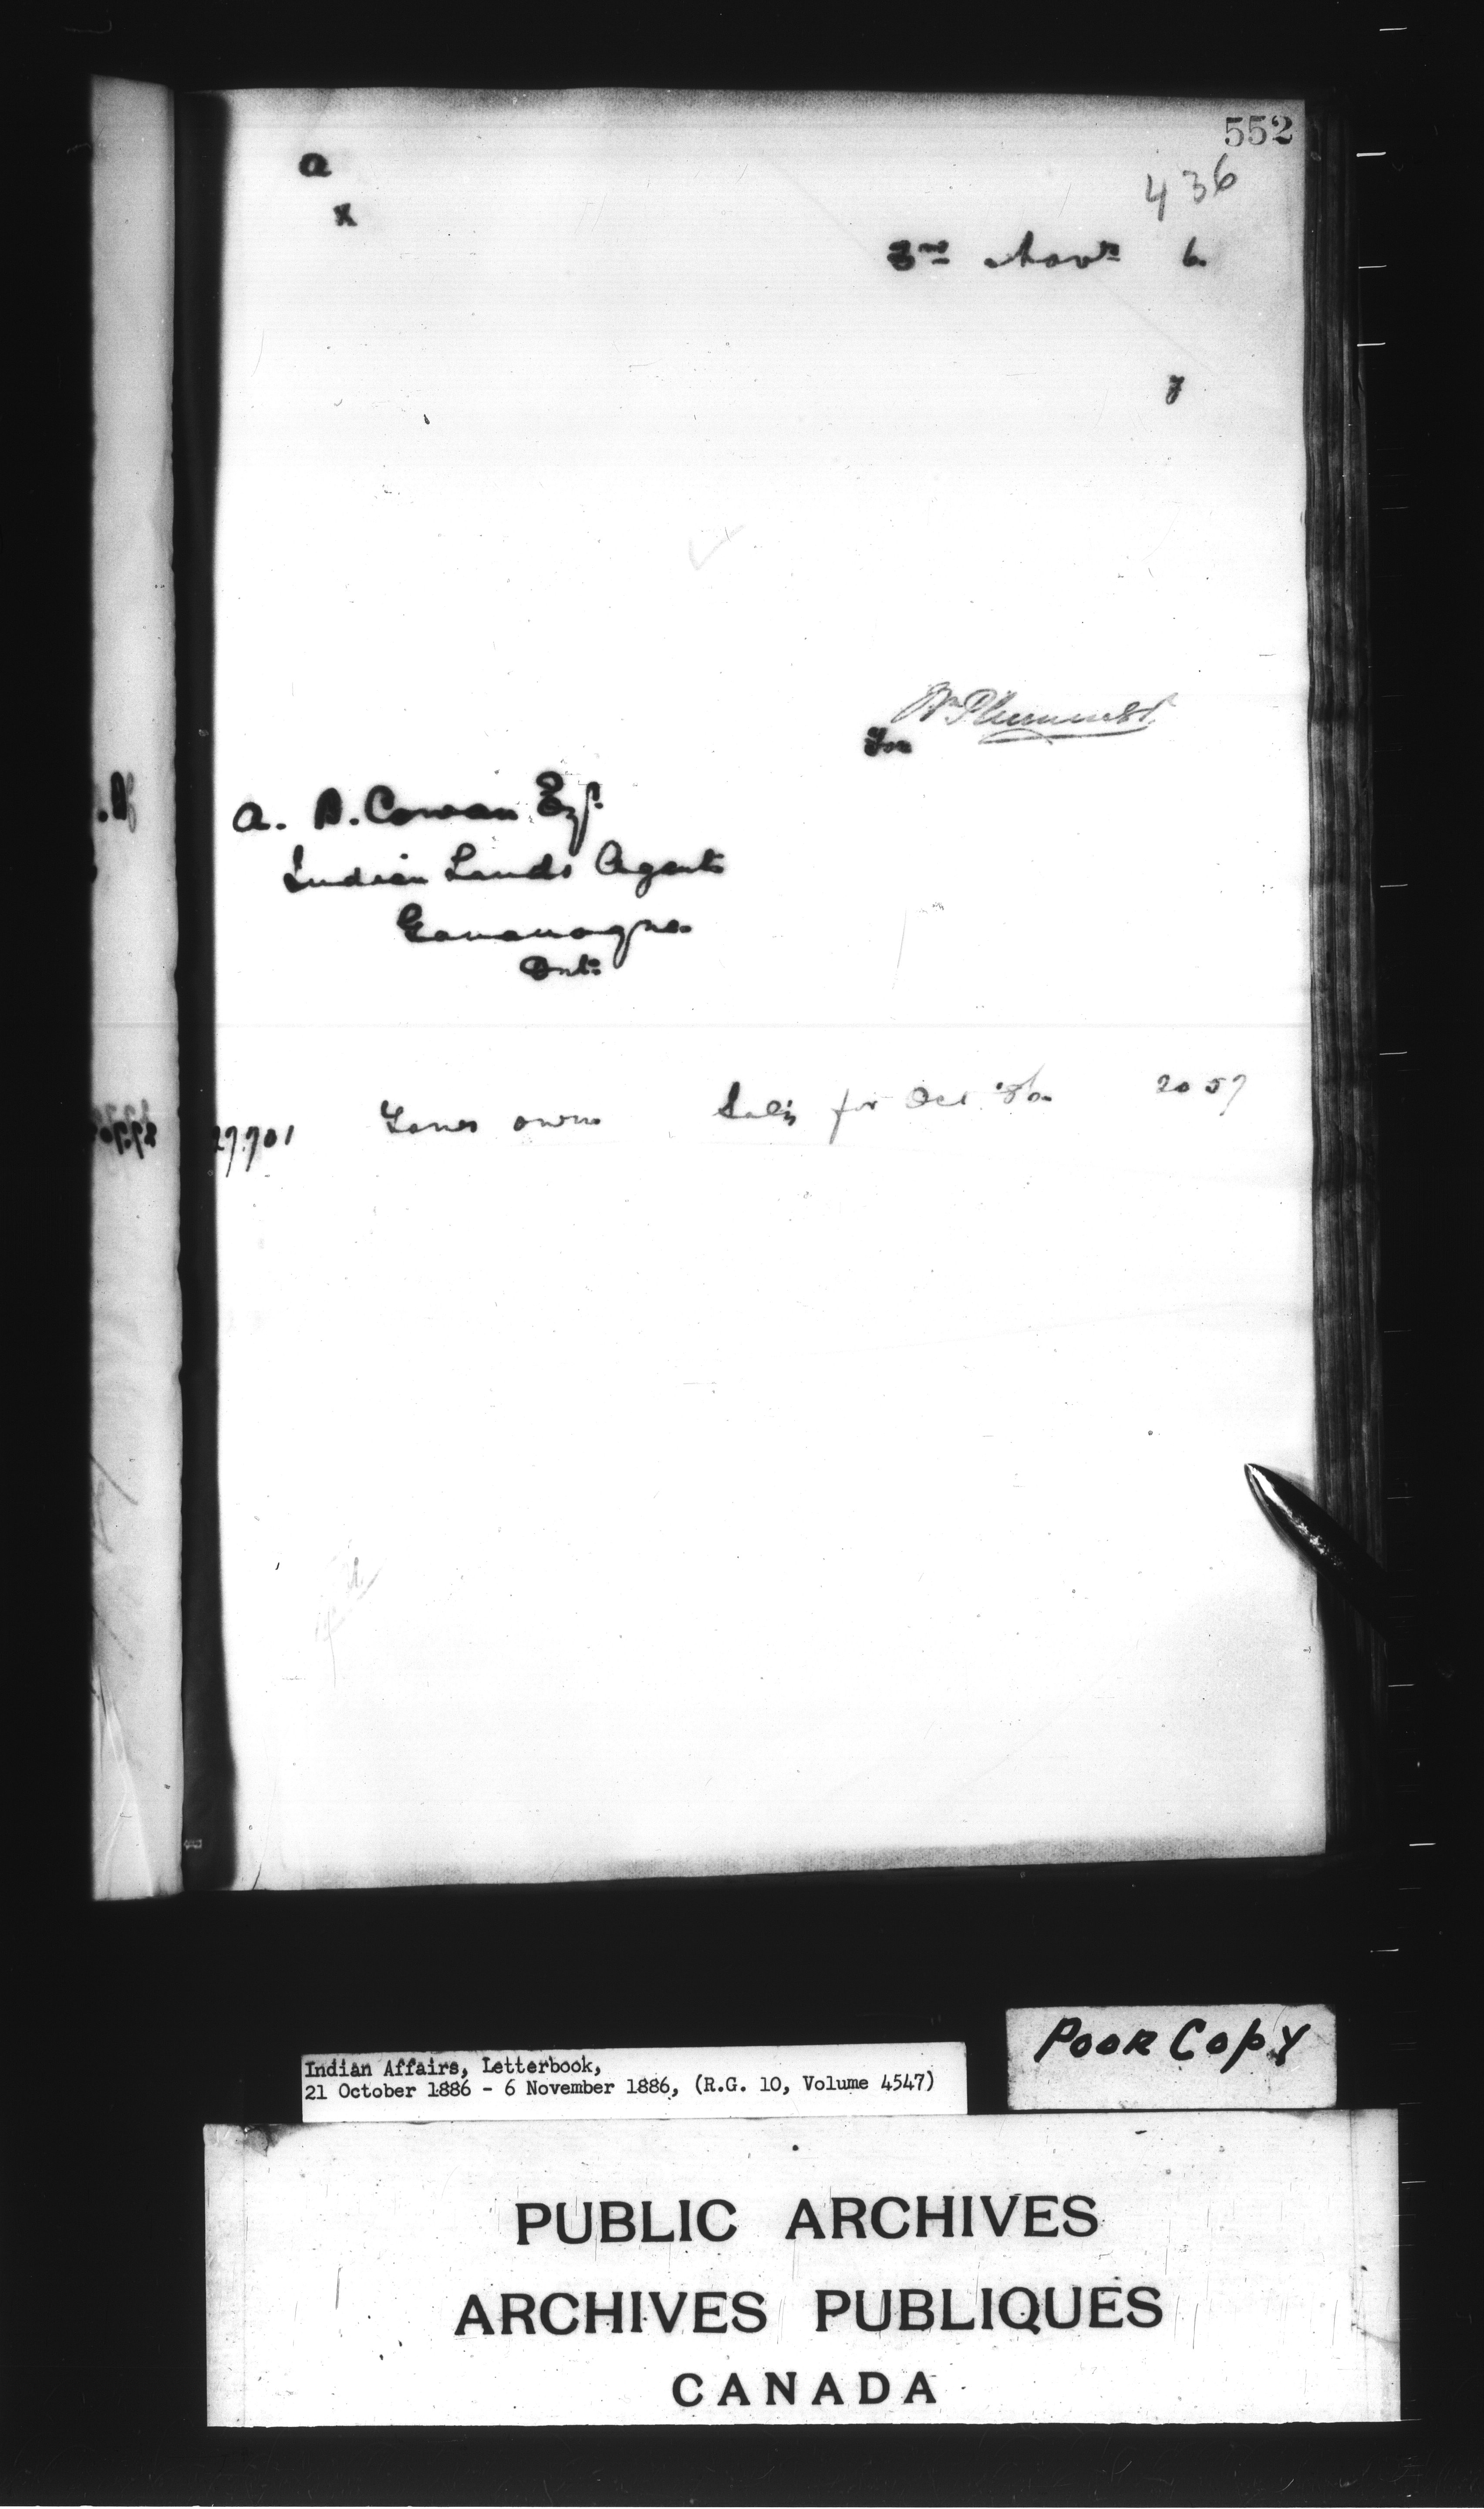 552
a
436
x
3rd Novr 6.
7
Wm Plummer
For
A. B. Cowan Esq.
Indian Lands Agent
Gananoque
Ont:
27.701 Yours own Sal'y for Oct. '86 20 57
Indian Affairs, Letterbook,
21 October 1886 - 6 November 1886, (R.G. 10, Volume 4547)
POOR COPY
PUBLIC ARCHIVES
ARCHIVES PUBLIQUES
CANADA